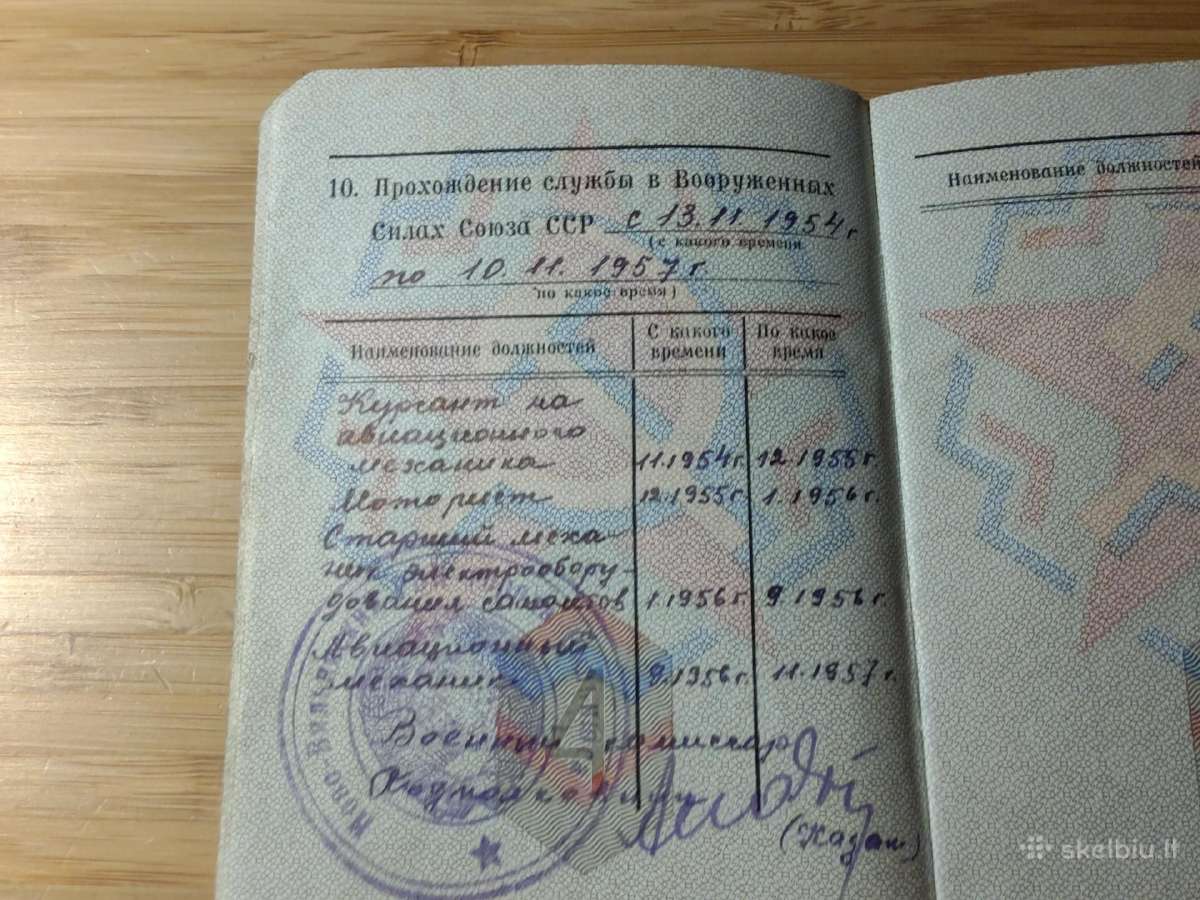 10. Прохождение службы в Вооруженных
Силах Союза ССР с 13.11.1954г.
(с какого времени
по 10.11.1957г.
по какое время)
Наименование должностей
С какого времени
По какое время
Курсант на
авиационного
механика 11.1954г. 12.1955г.
Моторист 12.1955г. 1.1956г.
Старший меха-
ник электрообору-
дования самолетов 1.1956г. 9.1956г.
Авиационный
механик 9.1956г. 11.1957г.
Военный комиссар
4
Наименование должностей
skelbiu.lt